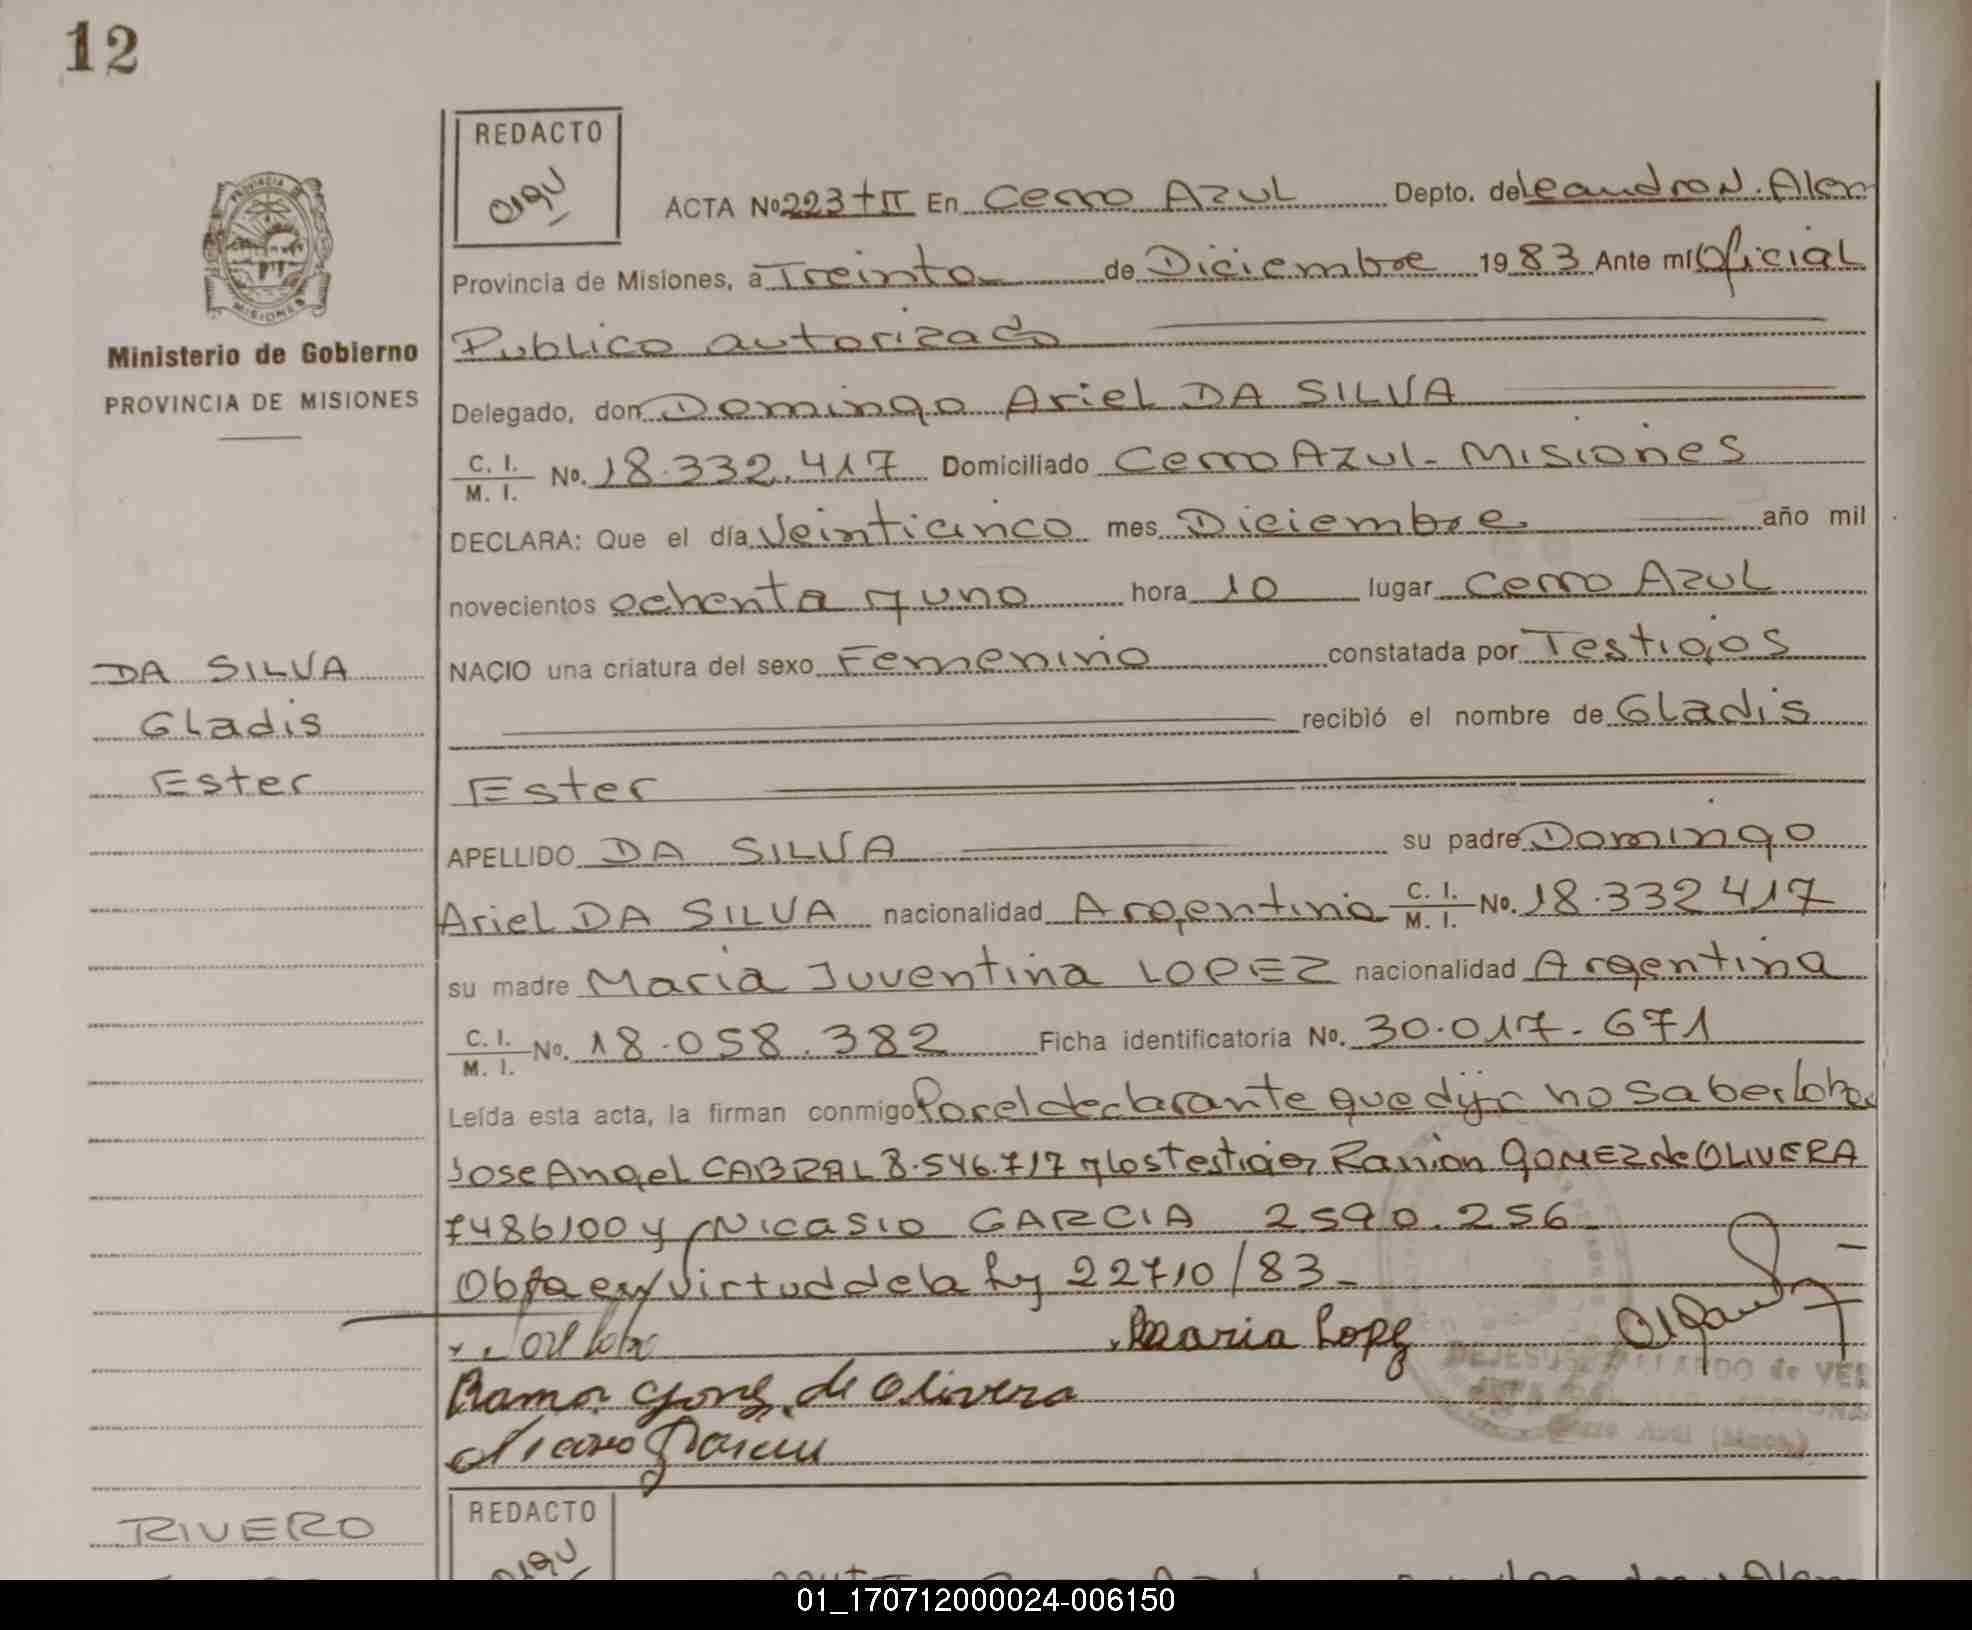 12
REDACTO
ACTA No 223 t II En Cerro Azul Depto. de Leandro N. Alem
PROVINCIA DE
MISIONES
Provincia de Misiones, a Treinta de Diciembre 1983 Ante mi Oficial
Ministerio de Gobierno
PROVINCIA DE MISIONES
Publico autorizado
Delegado, don Domingo Ariel DA SILVA
C. I. / M. I. No. 18.332.417 Domiciliado Cerro Azul - Misiones
DECLARA: Que el día Veinticinco mes Diciembre año mil
novecientos ochenta y uno hora 10 lugar Cerro Azul
DA SILVA
Gladis
Ester
NACIO una criatura del sexo Femenino constatada por Testigos
recibió el nombre de Gladis
Ester
APELLIDO DA SILVA su padre Domingo
Ariel DA SILVA nacionalidad Argentina C. I. / M. I. No. 18.332417
su madre Maria Juventina LOPEZ nacionalidad Argentina
C. I. / M. I. No. 18.058.382 Ficha identificatoria No. 30.017.671
Leída esta acta, la firman conmigo Por el declarante que dijo no saber lo hace
Jose Angel CABRAL 8.546.717 y los testigos Ramon GOMEZ de OLIVERA
7486100 y Nicasio GARCIA 2590.256
Obra en virtud de la ley 22710/83
Maria Lopez
de Olivera
de VER
RIVERO
REDACTO
01_170712000024-006150